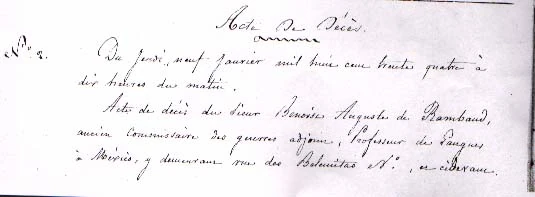 Acte De Décès.
N.° 2.
Du Jeudi, neuf Janvier mil huit cent trente quatre à
dix heures du matin.
Acte de décès du Sieur Benoist Auguste de Rambaud,
ancien Commissaire des guerres adjoint, Professeur de Langues
à , y demeurant rue des N.°, et cidevant